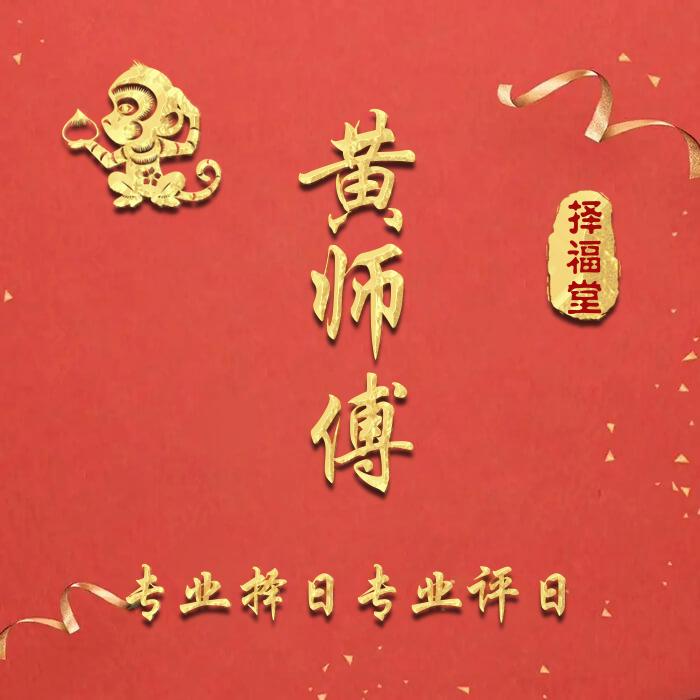 黄师傅
择福堂
专业择日专业评日